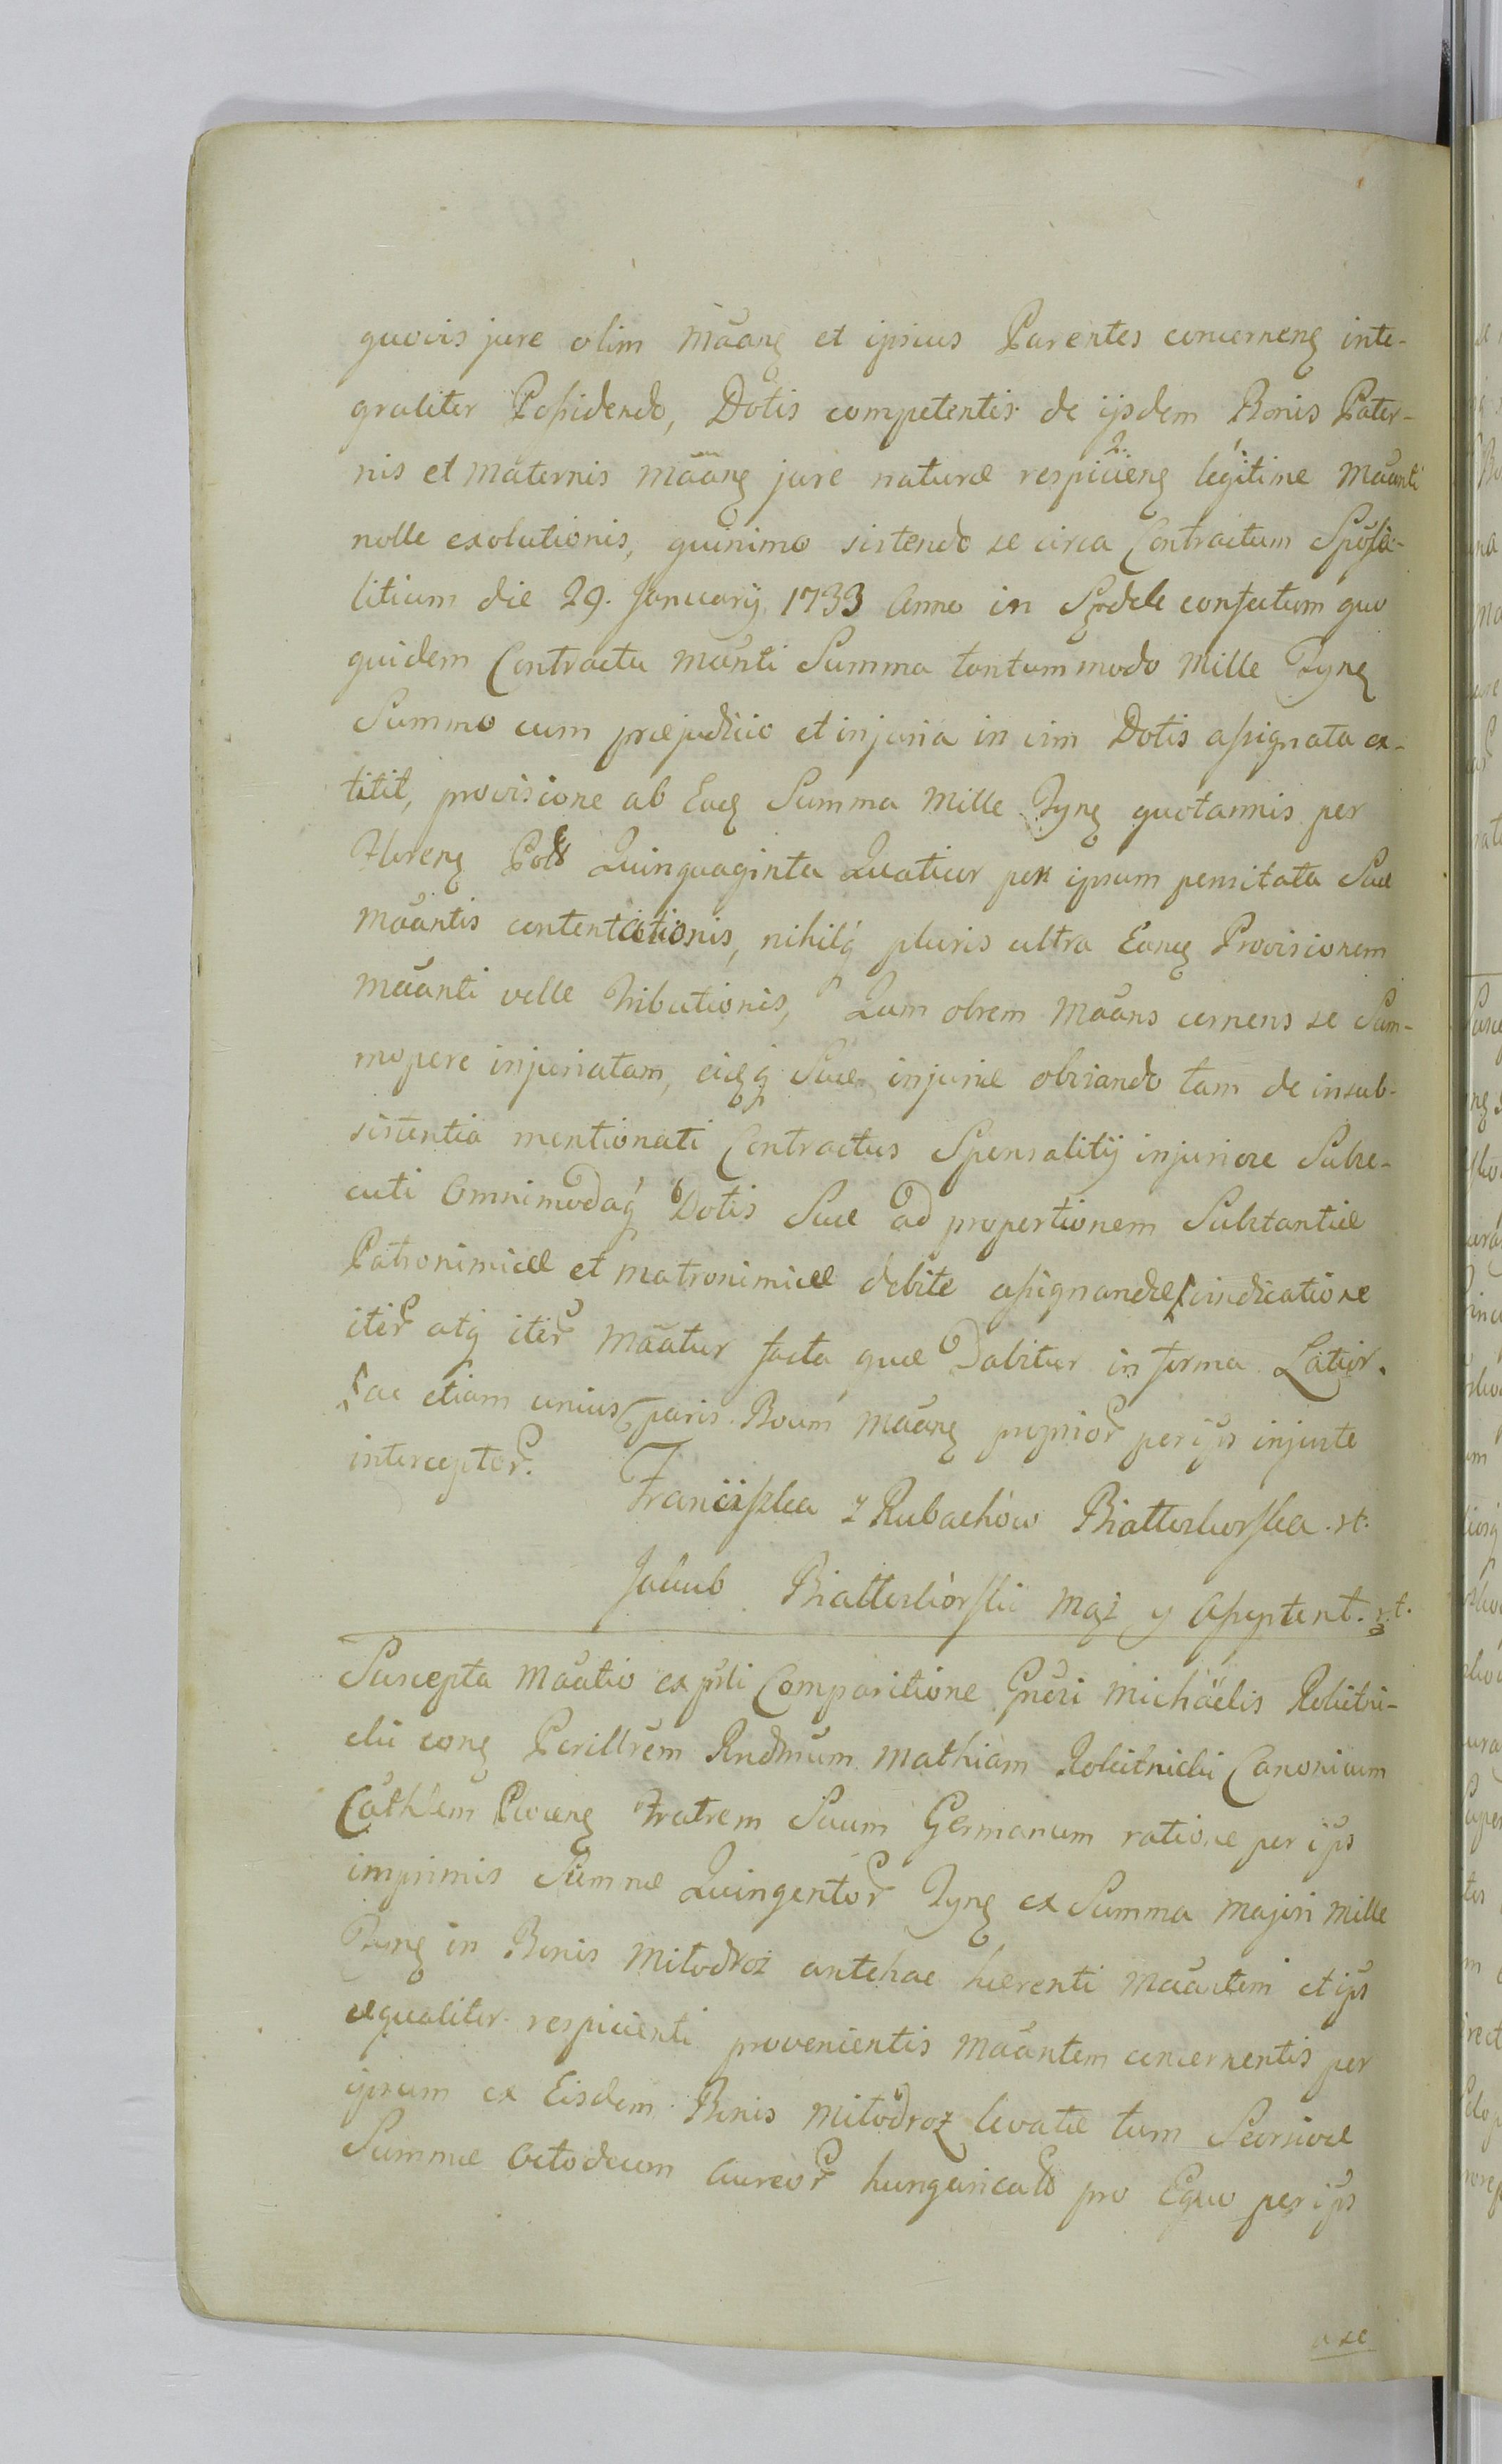 quovis jure olim mãang et ipsius Parentes concerneng inte-
graliter Possidendo, Dotis competentis de ijsdem Bonis Pater-
nis et maternis mãang jure naturæ respicieng legitime mãanti
nolle exolutionis, quinimo sistendo se circa Contractum Sponsa-
litium die 29. Januarij 1733 Anno in confectum quo
quidem Contractu mãnti Summa tantummodo mille Tyng
Summo cum præjudicio et injuria in vim Dotis assignata ex-
titit, provisione ab Eadg Summa mille Tyng quotannis per
Floreng Pol Quinquaginta Quatuor per ipsum pensitata Suæ
mãantis contentationis, nihilq pluris ultra Eang Provisionem
mãanti velle tributionis, Quam obrem mãans cernens se Sum-
mopere injuriatam, eidgq Suæ injuriæ obviando tam de insub-
sistentia mentionati Contractus Sponsalitij injuriose Subse-
cuti Omnimodaq Dotis Suæ ad proportionem Substantiæ
Patronimicæ et matronimicæ debite assignandæ vindicatione
iter atq iter mãatur facta quæ Dabitur in forma Latior.
ac etiam unius paris Boum mãang proprior per ips injuste
interceptor.
Franciszka z Rubachów Białłoskorska st.
Jakub Białłoskórski mąz y Assystent. st.
Suscepta mãatio ex psti Comparitione Gnosi michaelis Rokitni-
cki cong Perillrem Rndmum mathiam Rokitnicki Canonicum
Cathlem fratrem Suum Germanum ratione per ips
imprimis Summæ Quingentor Tyng ex Summa majori mille
Tyng in Bonis miłodroż antehac hærenti mãantem et ips
æqualiter respicienti provenientis mãantem concernentis per
ipsum ex Eisdem Bonis miłodroż levatæ tum Seorsivæ
Summæ Octodecim Aureor hungaricał pro Equo per ips
a se